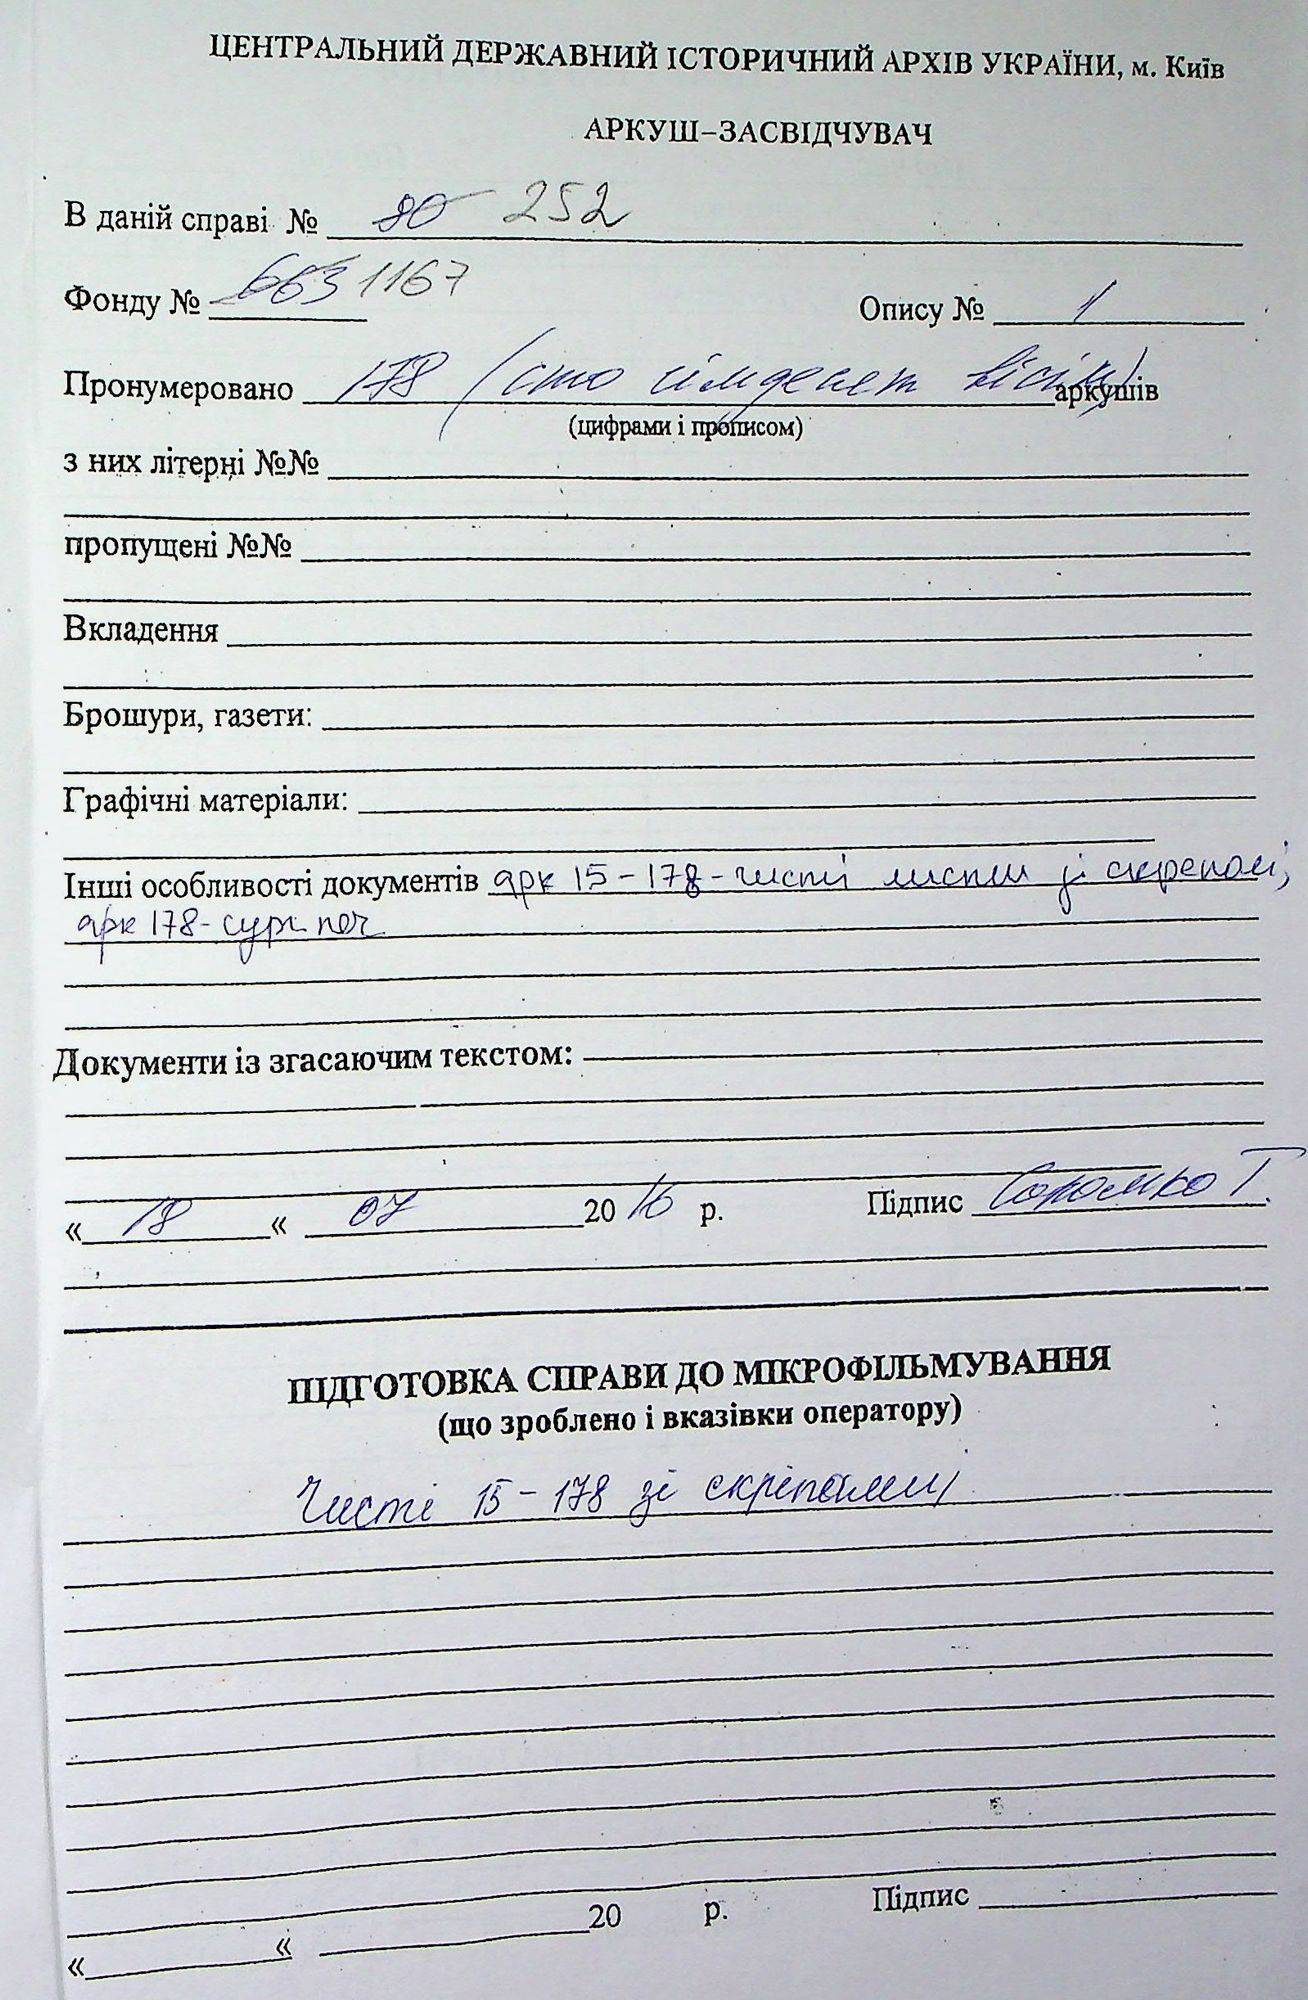 ЦЕНТРАЛЬНИЙ ДЕРЖАВНИЙ ІСТОРИЧНИЙ АРХІВ УКРАЇНИ, м. Київ
АРКУШ–ЗАСВІДЧУВАЧ
В даній справі № 80 252
Фонду № 663 1167 Опису № 1
Пронумеровано 178 (сто сімдесят вісім) аркушів
(цифрами і прописом)
з них літерні №№
пропущені №№
Вкладення
Брошури, газети:
Графічні матеріали:
Інші особливості документів арк 15-178-чисті листи зі скрепомі;
арк 178-сург. печ
Документи із згасаючим текстом:
« 18 « 07 2016 р. Підпис Т.
ПІДГОТОВКА СПРАВИ ДО МІКРОФІЛЬМУВАННЯ
(що зроблено і вказівки оператору)
Чисті 15-178 зі скріпами
« « 20 р. Підпис